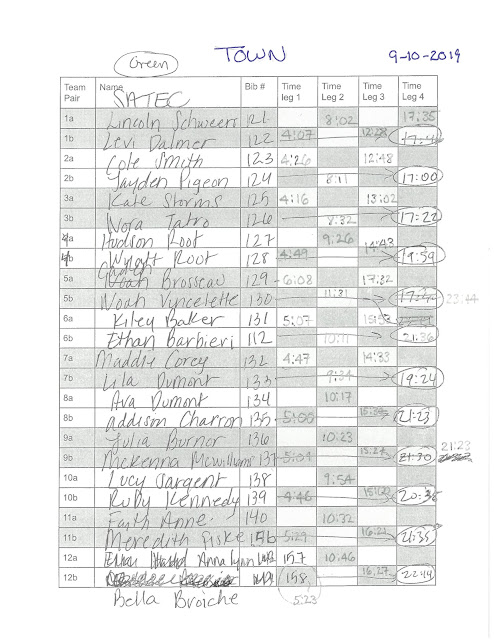 Green TOWN 9-10-2019
Team Pair Name Bib # Time leg 1 Time Leg 2 Time Leg 3 Time Leg 4
SATEC
1a Lincoln Schweers 121 8:02 17:35
1b Levi Dalmer 122 4:07 12:28
2a Cole Smith 123 4:26 12:48
2b Jayden Pigeon 124 8:11 17:00
3a Kate Storms 125 4:16 13:02
3b Nora Tatro 126 8:32 17:22
4a Hudson Root 127 9:26 14:43
4b Wright Root 128 4:49 19:59
5a Noah Brosseau 129 6:08 17:32
5b Noah Vincelette 130 11:31 23:44
6a Kiley Baker 131 5:07
6b Ethan Barbieri 112 10:11 21:36
7a Maddie Corey 132 4:47 14:33
7b Lila Dumont 133 9:34 19:24
8a Ava Dumont 134 10:17
8b Addison Charron 135 5:06 21:23
9a Julia Burnor 136 10:23 21:23
9b McKenna McWilliams 137 5:04 15:24 21:30
10a Lucy Sargent 138 9:54
10b Ruby Kennedy 139 4:46 20:38
11a Faith Anne 140 10:32
11b Meredith Fiske 156 5:29 16:21 21:35
12a Annalynn 157 10:46
12b 158 16:27 22:14
Bella Broiche 5:23